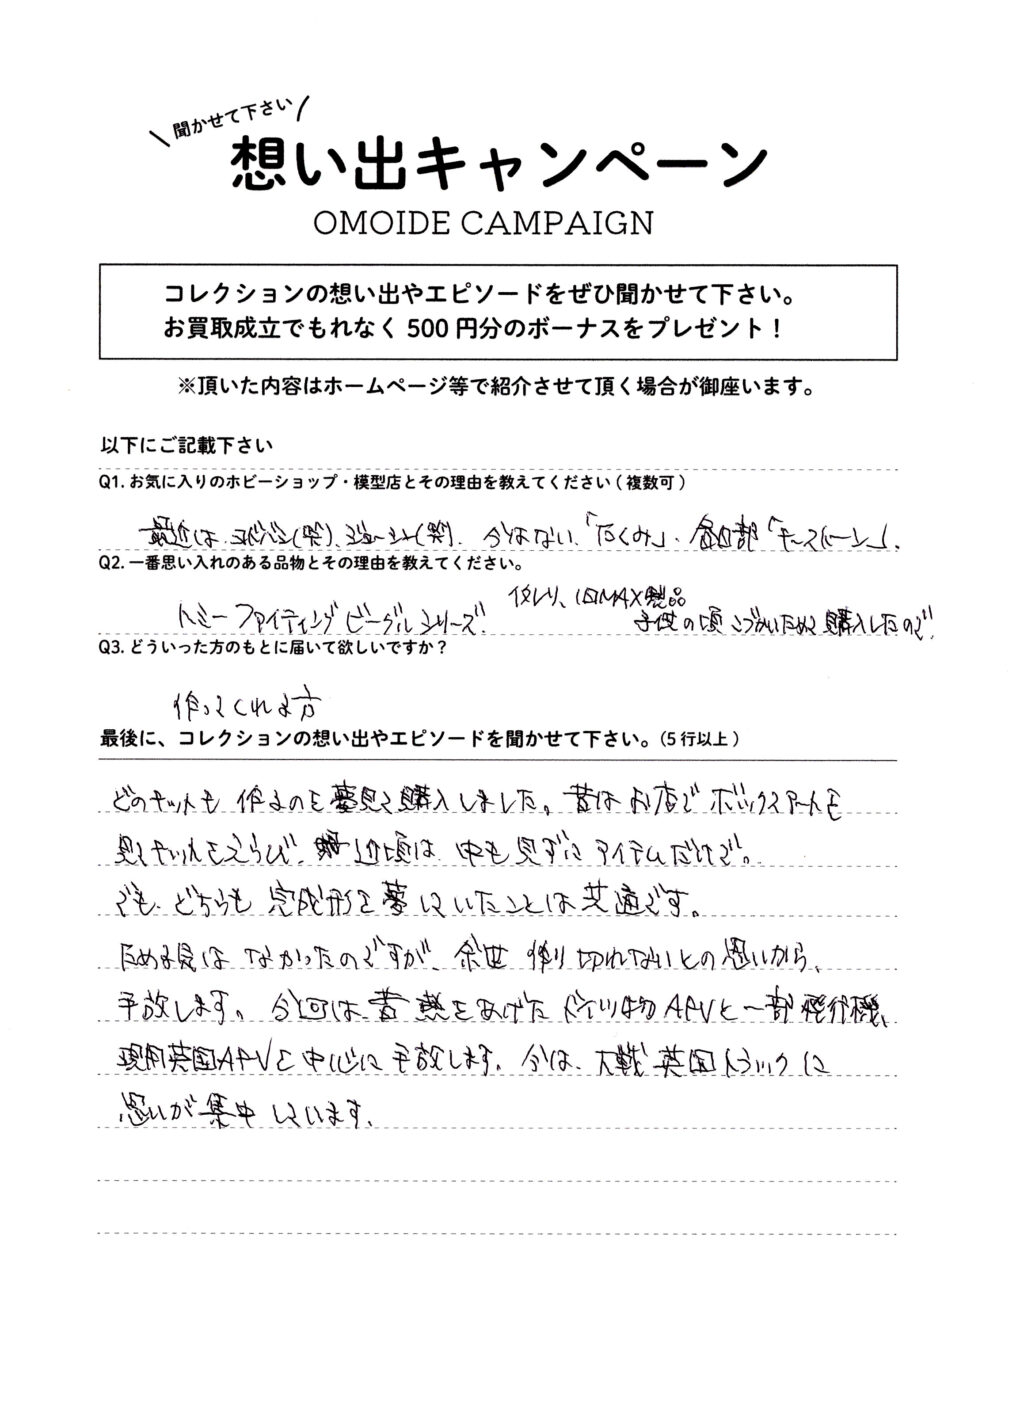 聞かせて下さい
想い出キャンペーン
OMOIDE CAMPAIGN
コレクションの想い出やエピソードをぜひ聞かせて下さい。
お買取成立でもれなく 500 円分のボーナスをプレゼント！
※頂いた内容はホームページ等で紹介させて頂く場合が御座います。
以下にご記載下さい
Q1. お気に入りのホビーショップ・模型店とその理由を教えてください ( 複数可 )
最近は、ヨドバシ(笑)、ジョーシン(笑)、今はない、「たくみ」、
Q2. 一番思い入れのある品物とその理由を教えてください。
イタレリ、旧MAX製品
トミーファイティングビーグルシリーズ。
子供の頃こづかいためて購入したので、
Q3. どういった方のもとに届いて欲しいですか？
作ってくれる方
最後に、コレクションの想い出やエピソードを聞かせて下さい。(5 行以上 )
どのキットも 作るのを夢見て購入しました。昔はお店でボックスアートを
見てキットをえらび、近頃は 中も見ずに アイテムだけで。
でも、どちらも 完成形を夢していたことは共通です。
ため息は なかったのですが、余世 作り切れないとの思いから、
手放します。今回は昔 熱をあげた ドイツ物AFVと一部飛行機、
現用英国AFVを中心に手放します。今は、大戦 英国トラックに
思いが 集中しています。